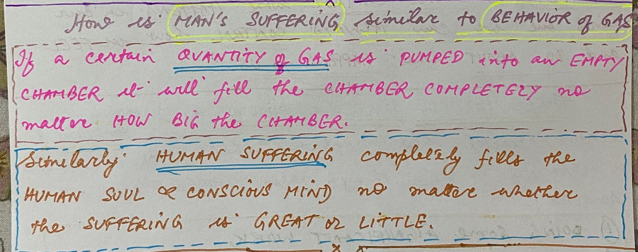 How is MAN'S SUFFERING similar to BEHAVIOR of GAS
If a certain QUANTITY of GAS is PUMPED into an EMPTY
CHAMBER it will fill the CHAMBER COMPLETELY no
matter HOW BIG the CHAMBER.
Similarly HUMAN SUFFERING completely fills the
HUMAN SOUL & CONSCIOUS MIND no matter whether
the SUFFERING is GREAT or LITTLE.